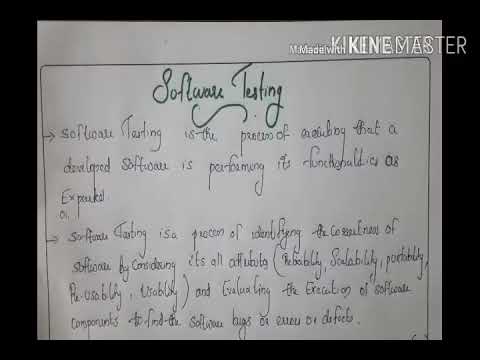 Made with KINEMASTER
Software Testing
→ Software Testing is the process of executing that a
developed software is performing its functionalities as
Expected.
Or
→ Software Testing is a process of identifying the correctness of
software by considering its all attributes (Reliability, Scalability, portability,
Re-usability, Usability) and Evaluating the Execution of software
components to find the software bugs or errors or defects.